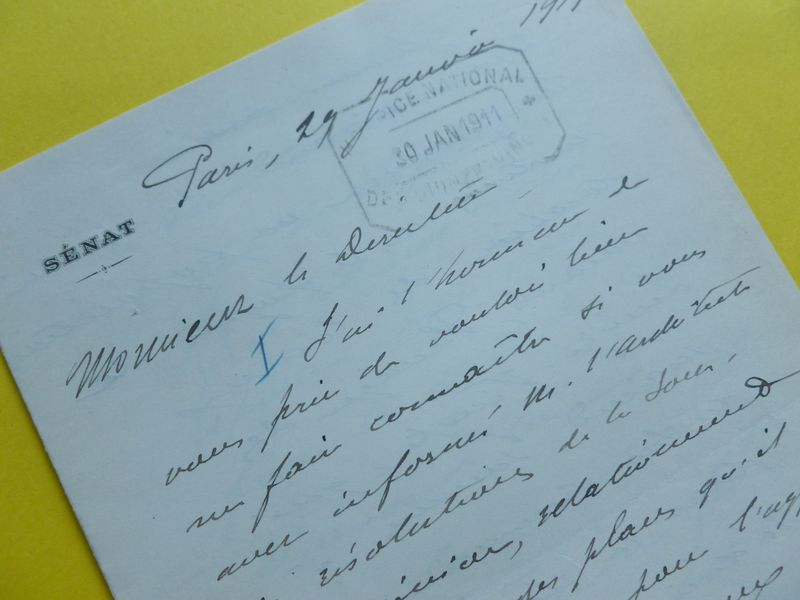 Paris, 29 Janvier 1911
SÉNAT
PICE NATIONAL
30 JAN 1911
Monsieur le Directeur
I
J'ai l'honneur de
vous prier de vouloir bien
me faire connaître si vous
avez informé M. l'architecte
résolutions de la Sous,
relativement
plans qu'il
pour l'app